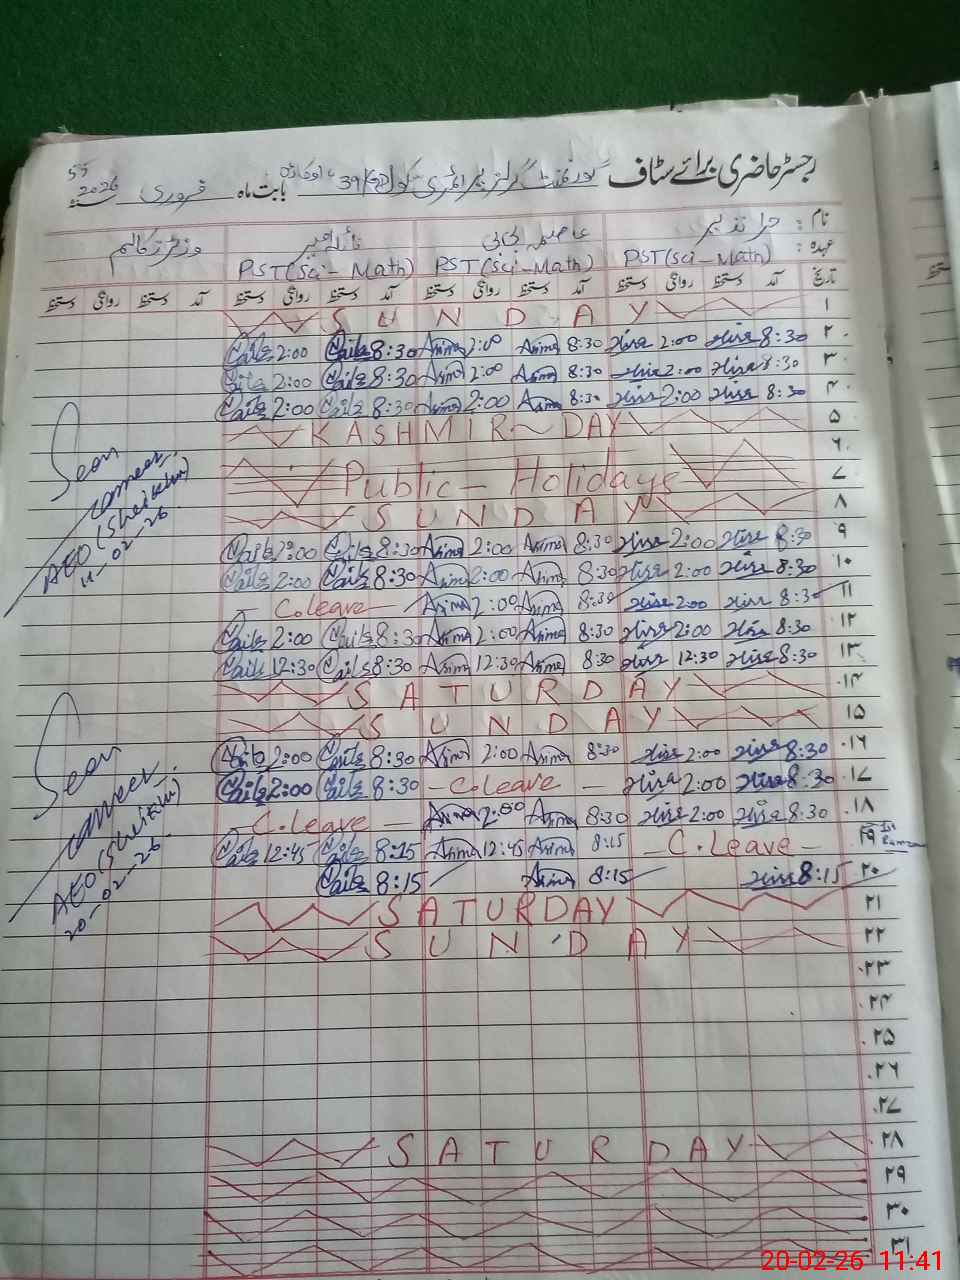 رجسٹر حاضری برائے سٹاف گورنمنٹ گرلز پرائمری سکول 39 بابت ماہ فروری 2026
نام: حرا نذیر عاصمہ بی بی نائلہ وزیٹرز کالم
عہدہ: PST(Sci-Math) PST(Sci-Math) PST(Sci-Math)
تاریخ آمد دستخط روانگی دستخط آمد دستخط روانگی دستخط آمد دستخط روانگی دستخط آمد دستخط روانگی دستخط
۱ SUNDAY
۲ Naila 2:00 Naila 8:30 Asima 2:00 Asima 8:30 Hira 2:00 Hira 8:30
۳ Naila 2:00 Naila 8:30 Asima 2:00 Asima 8:30 Hira 2:00 Hira 8:30
۴ Naila 2:00 Naila 8:30 Asima 2:00 Asima 8:30 Hira 2:00 Hira 8:30
۵ KASHMIR-DAY
۶
۷ Public-Holidays
۸ SUNDAY
۹ Naila 2:00 Naila 8:30 Asima 2:00 Asima 8:30 Hira 2:00 Hira 8:30
۱۰ Naila 2:00 Naila 8:30 Asima 2:00 Asima 8:30 Hira 2:00 Hira 8:30
۱۱ C.leave Asima 2:00 Asima 8:30 Hira 2:00 Hira 8:30
۱۲ Naila 2:00 Naila 8:30 Asima 2:00 Asima 8:30 Hira 2:00 Hira 8:30
۱۳ Naila 12:30 Naila 8:30 Asima 12:30 Asima 8:30 Hira 12:30 Hira 8:30
۱۴ SATURDAY
۱۵ SUNDAY
۱۶ Naila 2:00 Naila 8:30 Asima 2:00 Asima 8:30 Hira 2:00 Hira 8:30
۱۷ Naila 2:00 Naila 8:30 -C.leave- Hira 2:00 Hira 8:30
۱۸ -C.leave- Asima 2:00 Asima 8:30 Hira 2:00 Hira 8:30
۱۹ Naila 12:45 Naila 8:15 Asima 12:45 Asima 8:15 -C.Leave- 1st Ramzan
۲۰ Naila 8:15 Asima 8:15 Hira 8:15
۲۱ SATURDAY
۲۲ SUNDAY
۲۳
۲۴
۲۵
۲۶
۲۷
۲۸ SATURDAY
۲۹
۳۰
۳۱
Seen
AEO (Sheikhu)
11-02-26
Seen
AEO (Sheikhu)
20-02-26
20-02-26 11:41